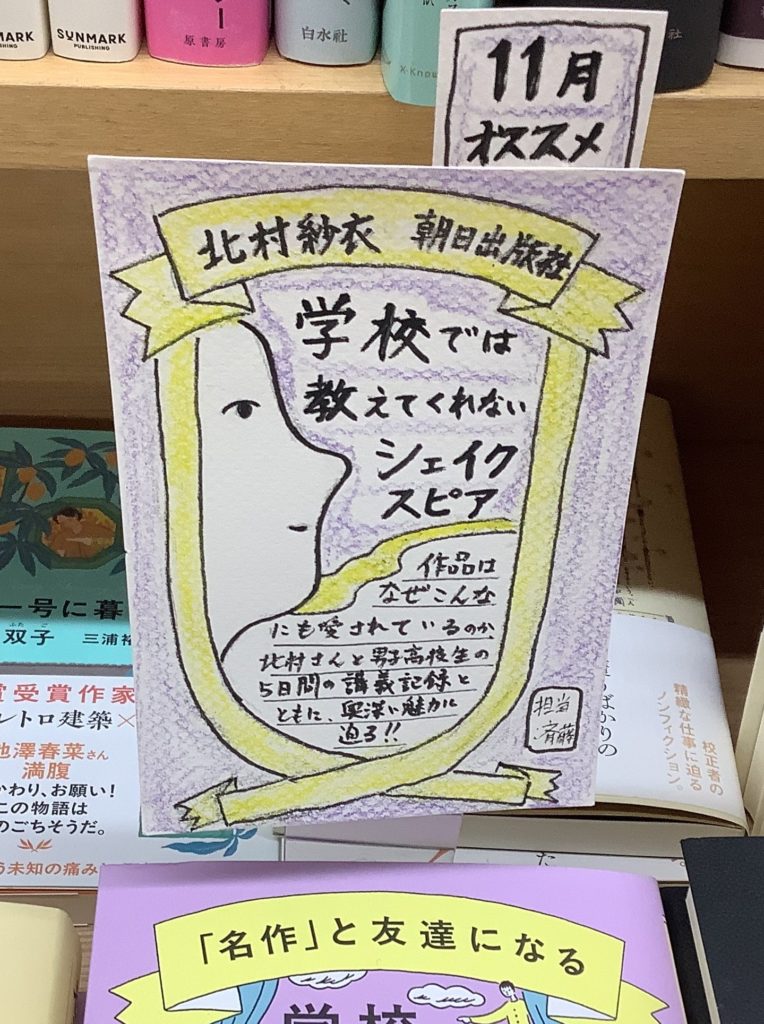 SUNMARK
PUBLISHING
原書房
白水社
X-Know
11月
オススメ
北村紗衣 朝日出版社
学校では
教えてくれない
シェイク
スピア
作品は
なぜこんな
にも愛されているのか
北村さんと男子高校生の
5日間の講義記録と
ともに、奥深い魅力に
迫る!!
担当
齊藤
一号に暮
双子
ふたご
三浦裕
賞受賞作家
レトロ建築×
池澤春菜さん
満腹
かわり、お願い!
この物語は
のごちそうだ。
う未知の痛み
ばかりの
校正者の
精緻な仕事に迫る
ノンフィクション。
「名作」と友達になる
学校